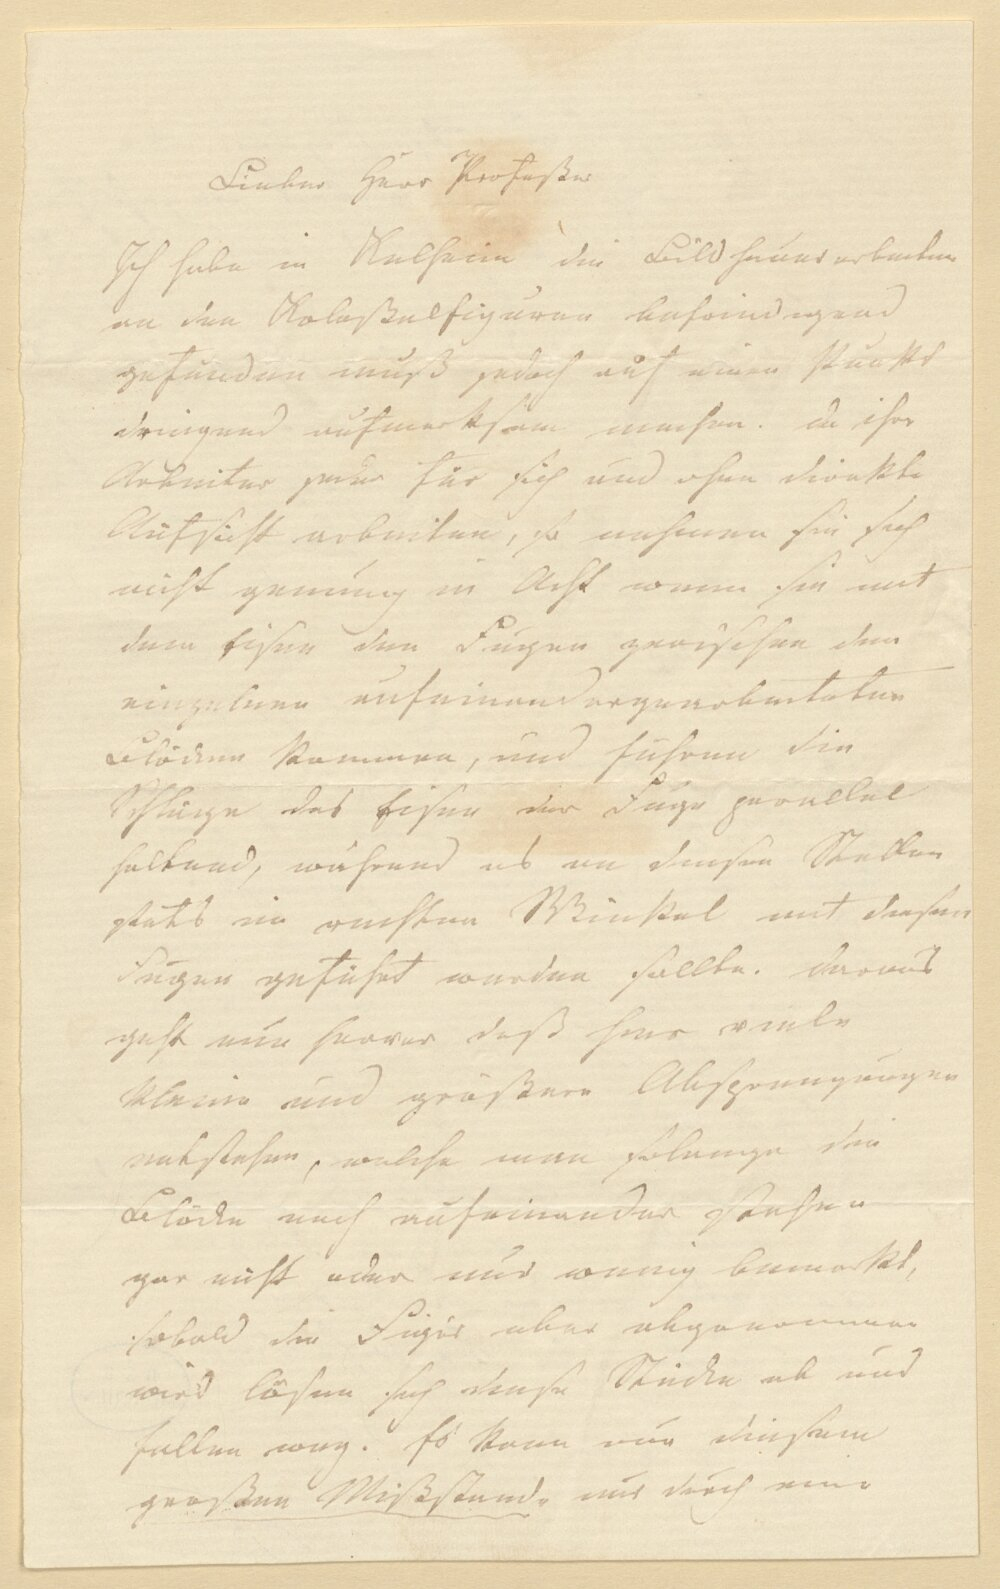 Lieber Herr Profeßor
Ich habe in Kelheim die Bildhauerarbeiten
an den Koloßalfiguren befriedigend
gefunden muß jedoch auf einen Punkt
dringend aufmerksam machen. Da ihre
Arbeiter jeder für sich und ohne direkte
Aufsicht arbeiten, so nehmen sie sich
nicht genung in Acht wenn sie mit
dem Eisen den Fugen zwischen den
einzelnen aufeinandergearbeiteten
Blöcken kommen, und führen die
Schläge das Eisen der Fuge parallel
haltend, während es an diesen Stellen
stets in rechten Winkel mit diesen
Fugen geführt werden sollte. Daraus
geht nun hervor daß hier viele
kleine und größere Absprengungen
entstehen, welche man solange die
Blöcke noch aufeinander stehen
gar nicht oder nur wenig bemerkt,
sobald die Figur aber abgenommen
wird lösen sich diese Stücke ab und
fallen weg. Es kann nun diesem
großen Mißstande nur durch eine